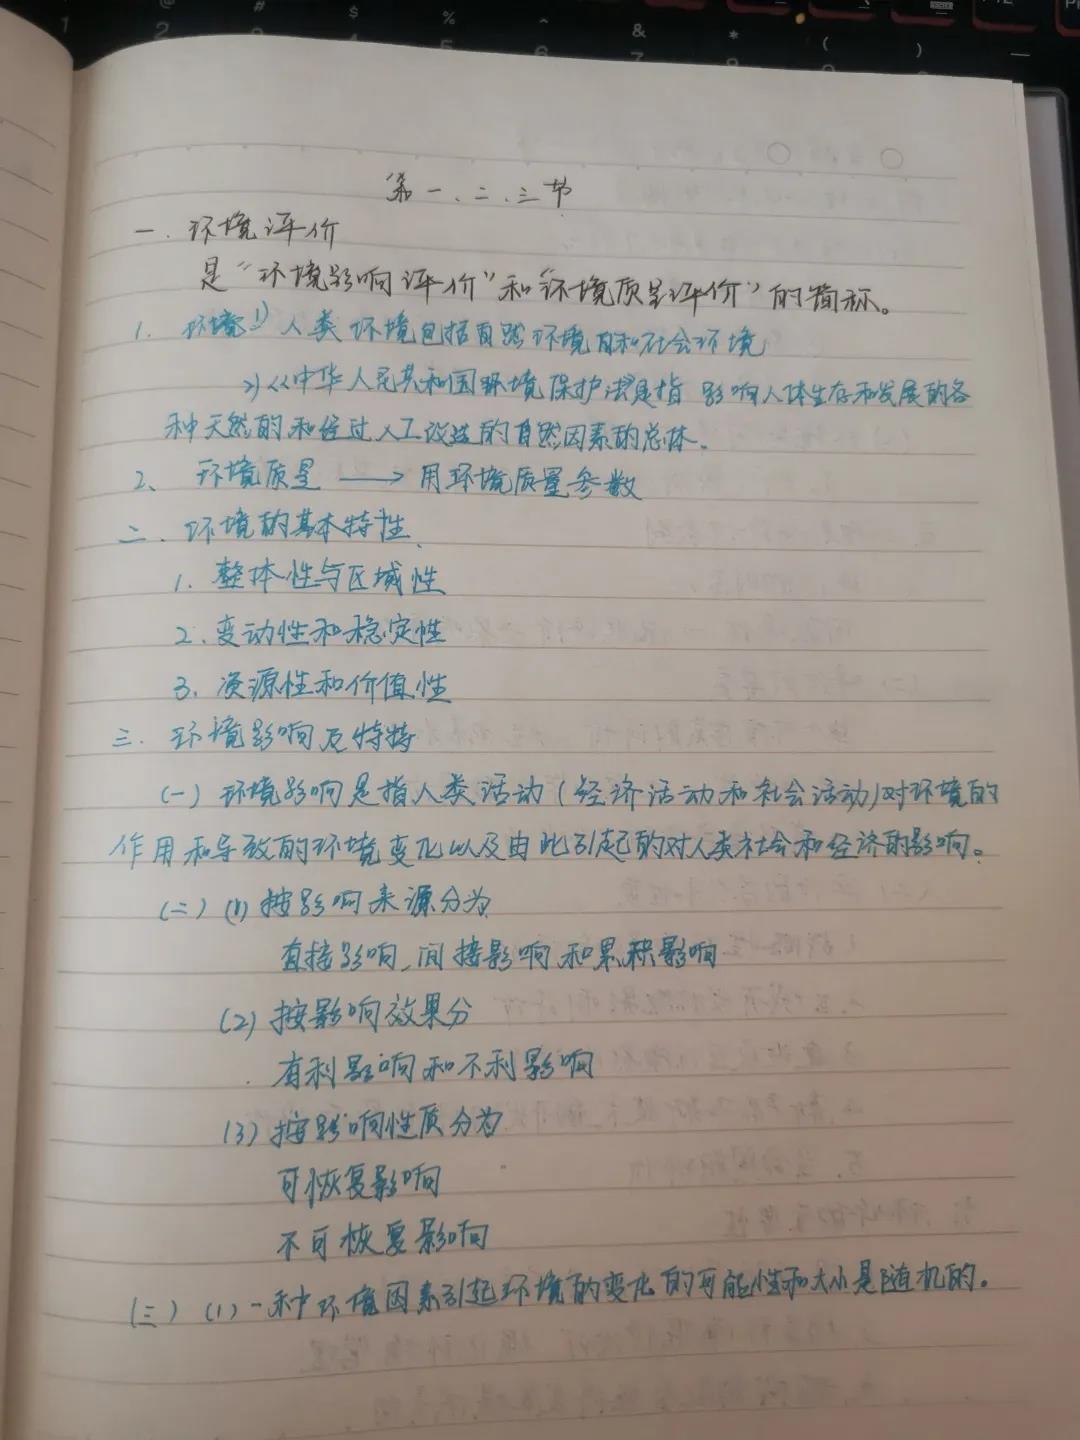 第一、二、三节
一. 环境评价
是“环境影响评价”和“环境质量评价”的简称。
1. 环境 1) 人类环境包括自然环境和社会环境
2)《中华人民共和国环境保护法》是指 影响人体生存和发展的各
种天然的和经过人工改造的自然因素的总体.
2、 环境质量 → 用环境质量参数
二. 环境的基本特性
1. 整体性与区域性
2. 变动性和稳定性
3. 资源性和价值性
三. 环境影响及特特
(一) 环境影响是指人类活动(经济活动和社会活动)对环境的
作用和导致的环境变化以及由此引起的对人类社会和经济的影响。
(二) (1) 按影响来源分为
直接影响、间接影响和累积影响
(2) 按影响效果分
有利影响和不利影响
(3) 按影响性质分为
可恢复影响
不可恢复影响
(三) (1) 一种环境因素引起环境的变化的可能性和大小是随机的。